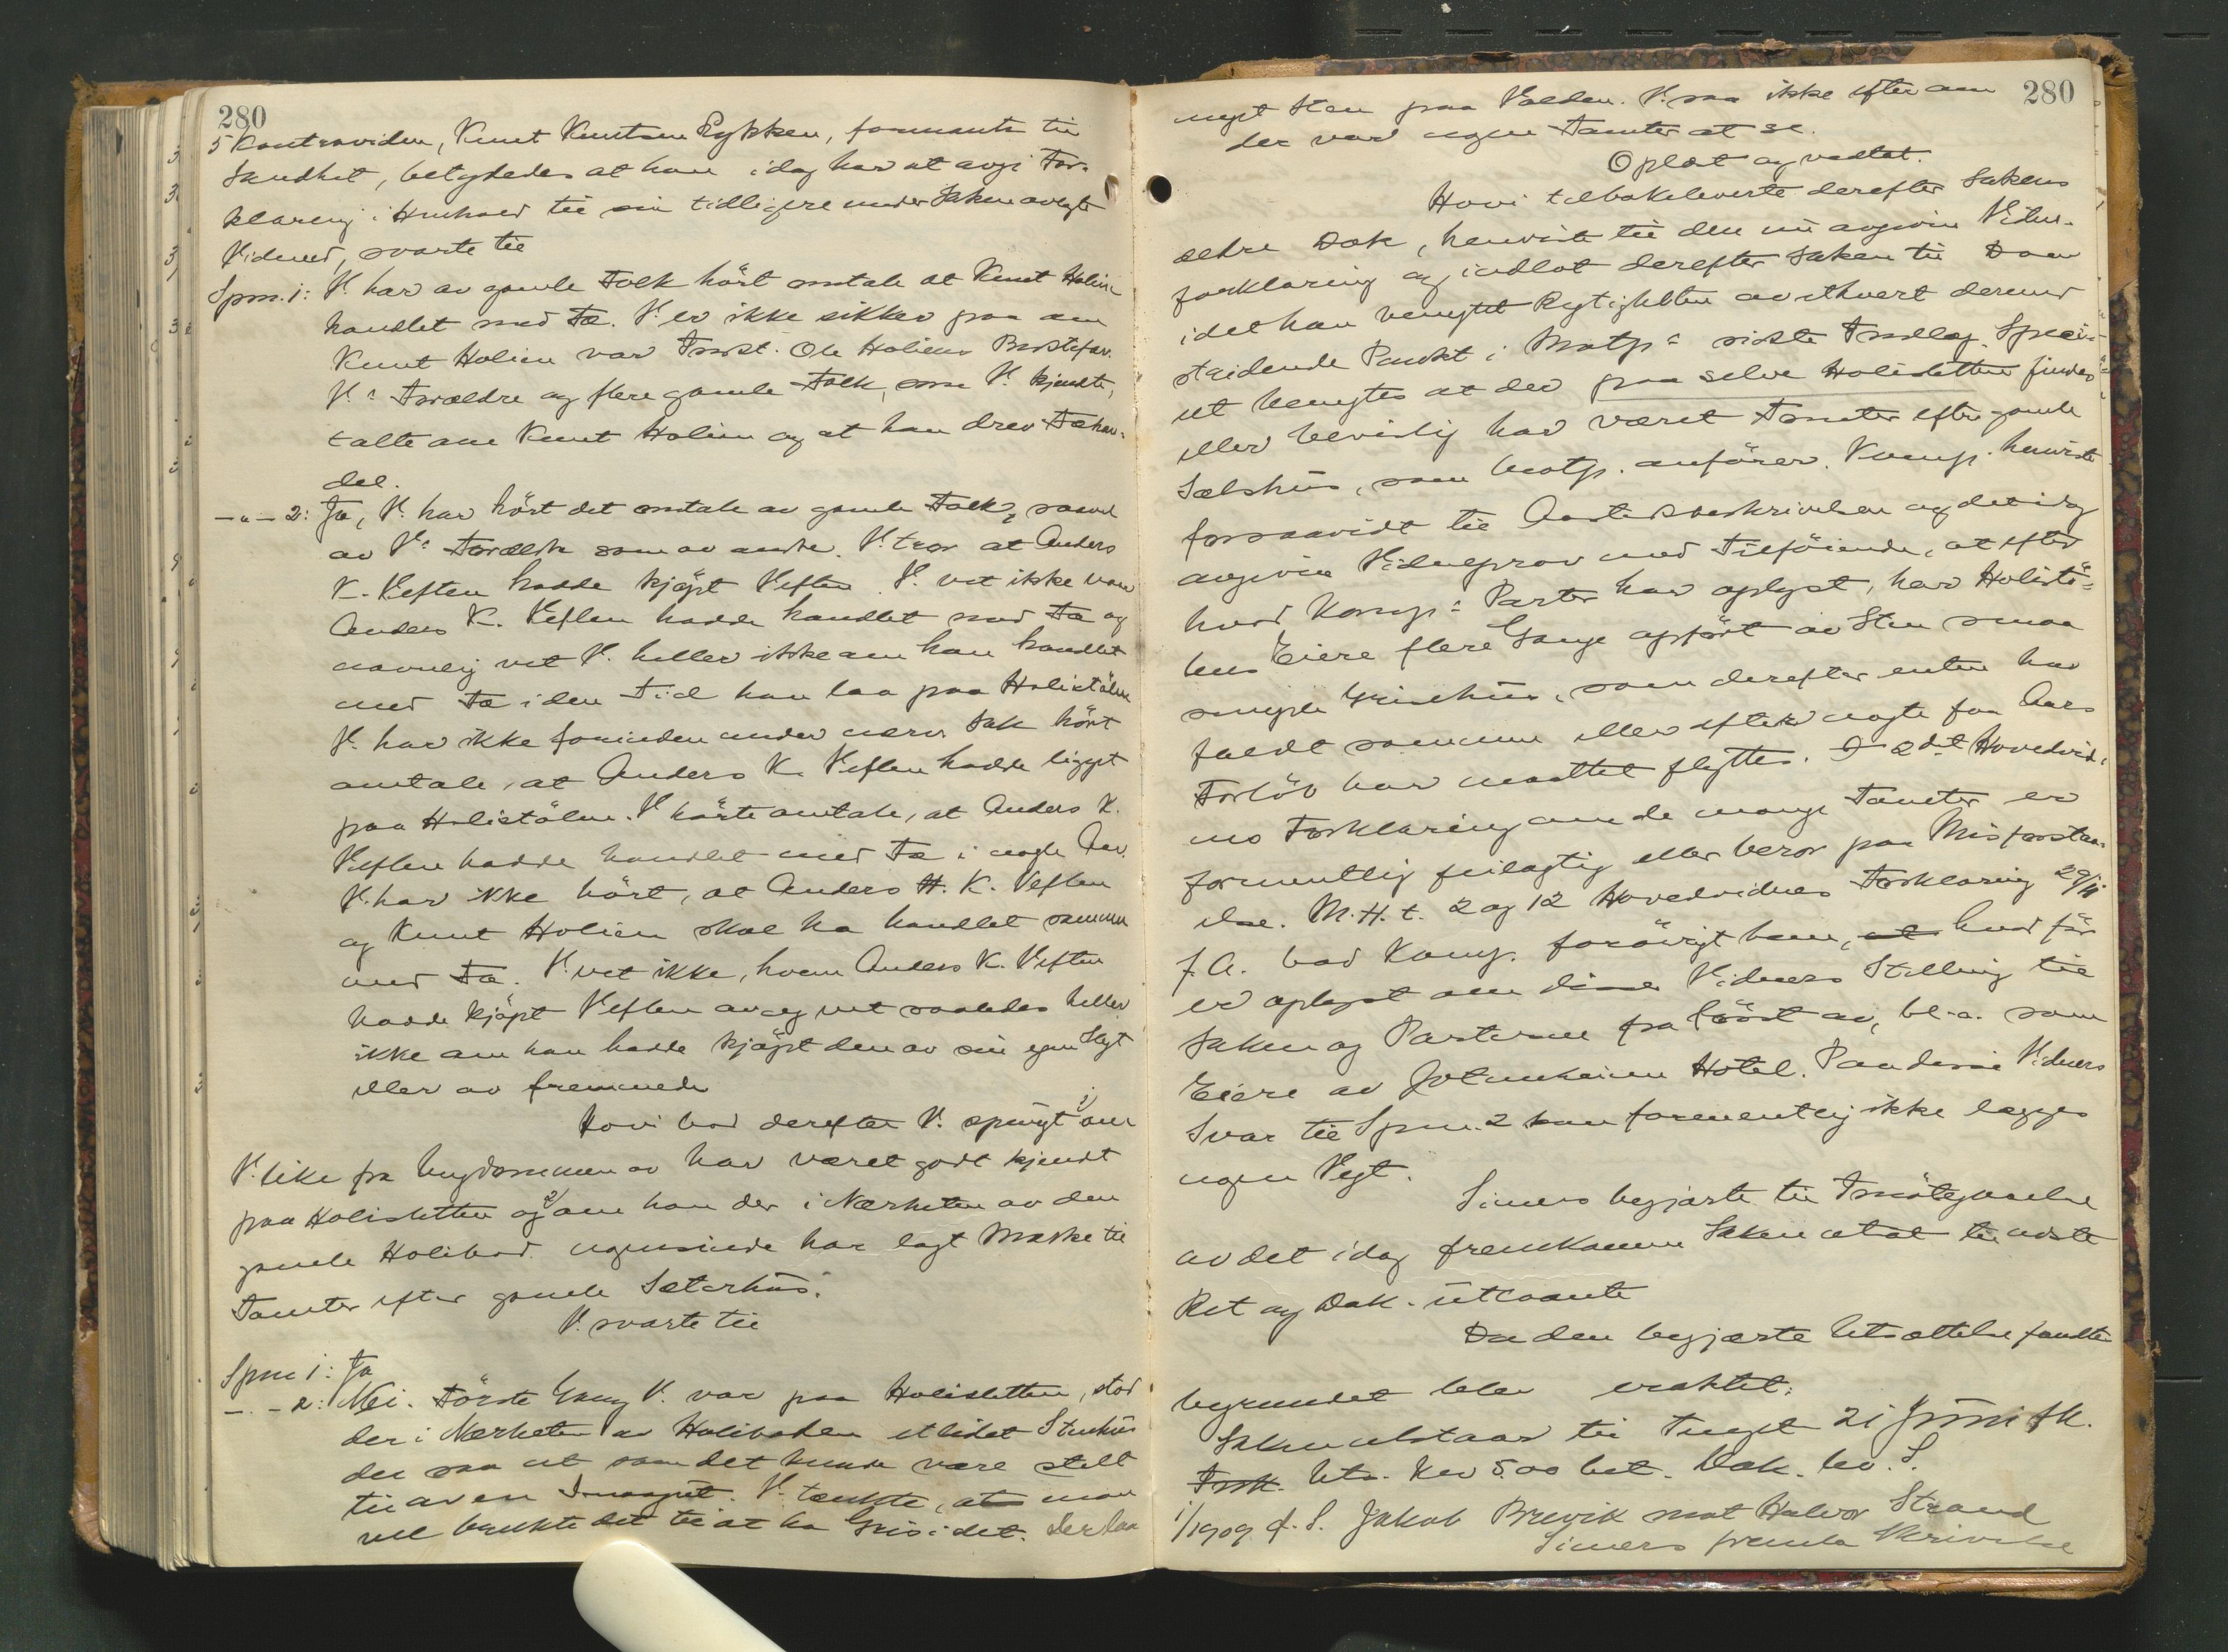 280
5 Kontraviden, Knut Knutsen Rykken, formante til
Sandhet, betydedes at han idag har at avgi For-
klaring i Henhold til sin tidligere under Saken avlagte
Vidneed, svarte til
Spm. 1: V. har av gamle Folk hört omtale at Knut Holien
handlet med Fæ. V. er ikke sikker paa om
Knut Holien var Ole Holiens Bestefar.
V.s Forældre og flere gamle Folk, som V. kjendte,
talte om Knut Holien og at han drev Fæhan-
del.
-"- 2: Ja, V. har hört det omtale av gamle Folk, saavel
av V.s Forældre som av andre. V. tror at Anders
K. Veflen hadde kjöpt Veflen. V. vet ikke
Anders K. Veflen hadde handlet med Fæ og
navnlig vet V. heller ikke om han handlet
med Fæ i den Tid han laa paa Holistölen
V. har ikke forinden under nærv. Sak hört
omtale, at Anders K. Veflen hadde ligget
paa Holistölen. V. hörte omtale, at Anders K.
Veflen hadde handlet med Fæ i nogle Aar.
V. har ikke hört, at Anders H. K. Veflen
og Knut Holien skal ha handlet sammen
med Fæ. V. vet ikke, hvem Anders K. Veflen
hadde kjöpt Veflen av og vet saaledes heller
ikke om han hadde kjöpt den av sin egen Slegt
eller av fremmede
Hovi bad derefter V. spurgt 1) om
V. like fra Ungdommen av har været godt kjendt
paa Holisletten og 2) om han der i Nærheten av den
gamle Holibod nogensinde har lagt Mærke til
Tomter efter gamle Sæterhus.
V. svarte til
Spm 1: Ja
-"- 2: Nei. Förste Gang V. var paa Holisletten, stod
der i Nærheten av Holiboden et lidet Stenhus
der saa ut som det kunde være stelt
til av en Smaagut. V. tænkte, at man
vel brukte det til at ha Gris i det. Der laa
280
noget Sten paa Volden. V. saa ikke efter om
der var nogen Tomter at se.
Oplæst og vedtat.
Hovi tilbakeleverte derefter Sakens
ældre Dok, henviste til den nu avgivne Vidne-
forklaring og indlot derefter Saken til Dom
idet han benegtet Rigtigheten av ethvert dermed
stridende Punkt i Motp.s sidste Indlæg. Speci-
elt benegtes at der paa selve Holisletten findes
eller bevislig har været Tomter efter gamle
Sælshus, som Motp. anförer. Komp. henviste
forsaavidt til Aastedsbeskrivelsen og det idag
avgivne Vidneprov med Tilföiende, at efter
hvad Komp.s Parter har oplyst, har Holistö-
lens Eiere flere Gange opfört av Sten smaa
simple Grisehus, som derefter enten har
faldt sammen eller efter nogle faa Aars
Forlöb har maattet flyttes. I 2det Hovedvid-
nes Forklaring om de mange Tomter er
formentlig feilagtig eller beror paa Misforstaa-
else. M.H.t. 2 og 12 Hovedvidnes Forklaring 29/4
f.A. bad Komp. forövrigt bem., at hvad för
er oplyst om disse Vidners Stilling til
Saken og Parterne fra först av, bl.a. som
Eiere av Jotunheimen Hotel. Paa disse Vidners
Svar til Spm. 2 kan formentlig ikke lægges
nogen Vegt.
Simers begjærte til Imötegaaelse
av det idag fremkomne Saken utsat til næste
Ret og Dok. utlaante
Da den begjærte Utsættelse fandtes
begrundet blev eraktet:
Saken utstaar til Tinget 21 Juni fk.
Fork. Uts. Kr 5.00 bet. Dok. lev. S.
1/1909 f.S. Jakob Brevik mot Halvor Strand
Simers fremla Skrivelse